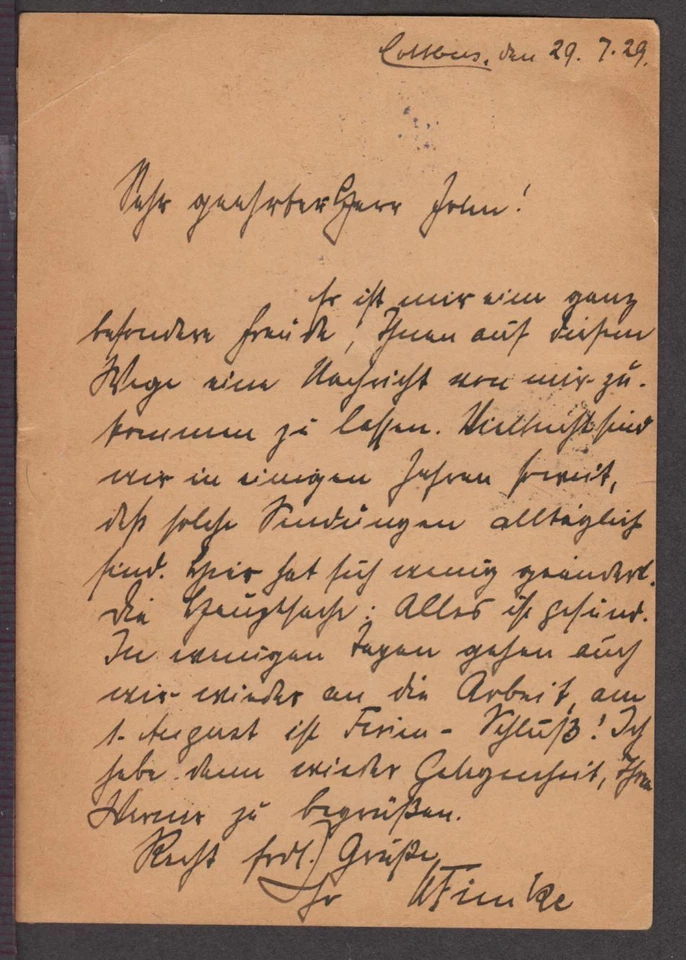 Cottbus, den 29. 7. 29.
Sehr geehrter Herr John!
Es ist mir eine ganz
besondere Freude, Ihnen auf diesem
Wege eine Nachricht von mir zu-
kommen zu lassen. Vielleicht sind
wir in einigen Jahren soweit,
daß solche Sendungen alltäglich
sind. Hier hat sich wenig geändert.
Die Hauptsache: Alles ist gesund.
In wenigen Tagen gehen auch
wir wieder an die Arbeit, am
1. August ist Ferien-Schluß! Ich
habe dann wieder Gelegenheit, Ihren
Werner zu begrüßen.
Recht frdl. Grüße
Ihr